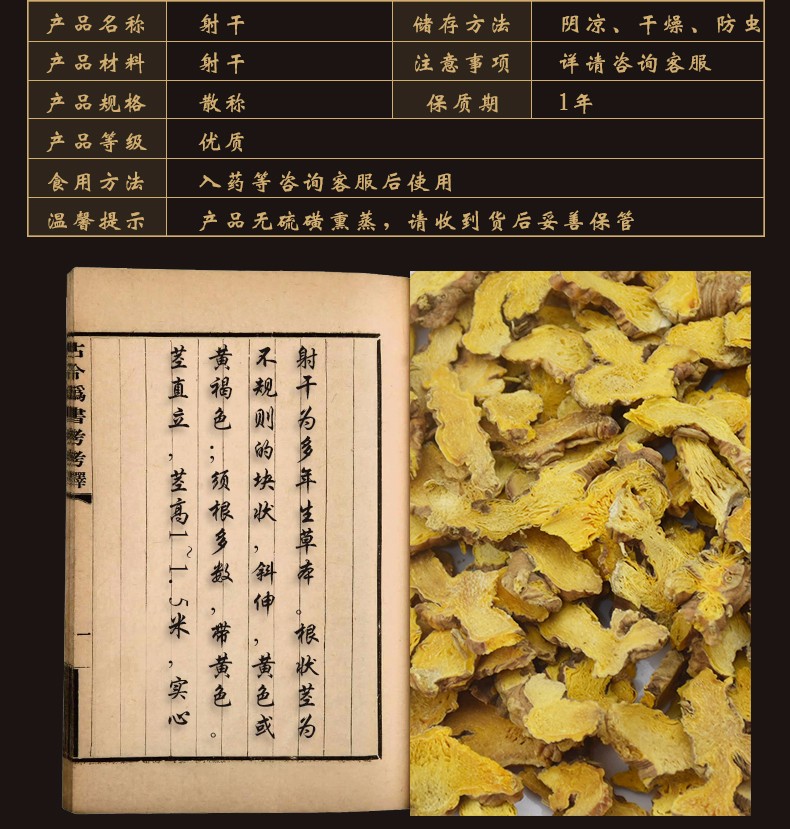 产品名称 射干 储存方法 阴凉、干燥、防虫
产品材料 射干 注意事项 详请咨询客服
产品规格 散称 保质期 1年
产品等级 优质
食用方法 入药等咨询客服后使用
温馨提示 产品无硫磺熏蒸，请收到货后妥善保管
射干为多年生草本。根状茎为
不规则的块状，斜伸，黄色或
黄褐色；须根多数，带黄色。
茎直立，茎高1~1.5米，实心
古今偽書考考釋
一